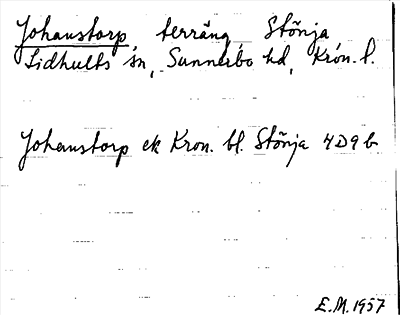 Johanstorp terräng Stönja
Lidhults sn, Sunnerbo hd, Kron. l.
Johanstorp ek Kron. bl. Stönja 4D9b
E.M. 1957